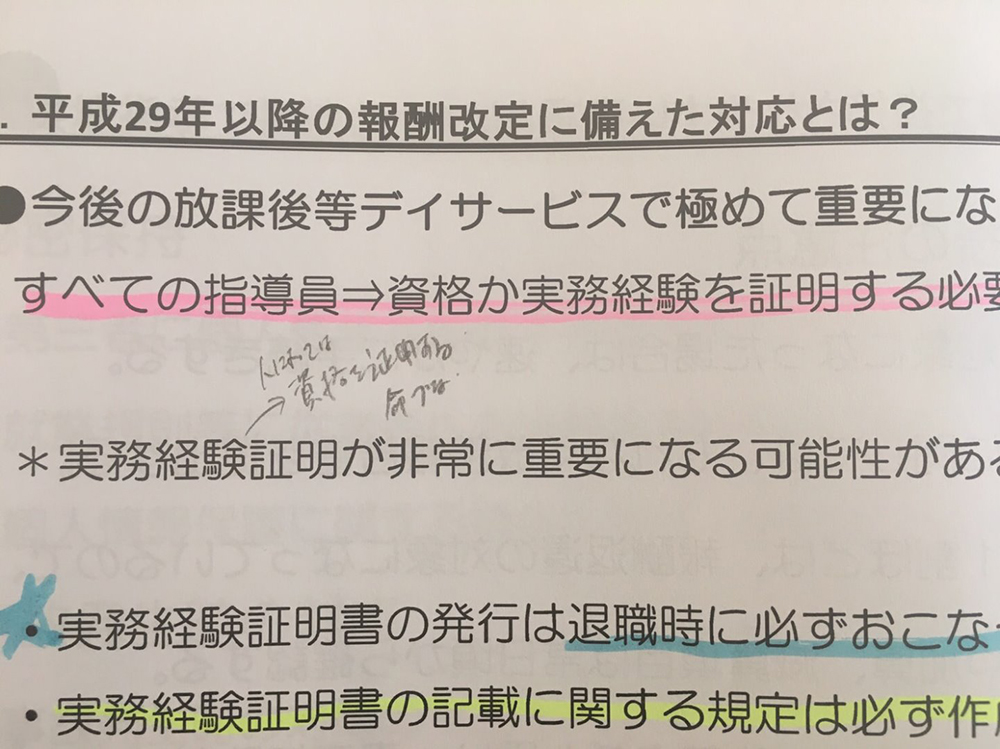 . 平成29年以降の報酬改定に備えた対応とは？
●今後の放課後等デイサービスで極めて重要にな
すべての指導員→資格か実務経験を証明する必要
資格を証明する
＊実務経験証明が非常に重要になる可能性がある
・実務経験証明書の発行は退職時に必ずおこな
・実務経験証明書の記載に関する規定は必ず作成